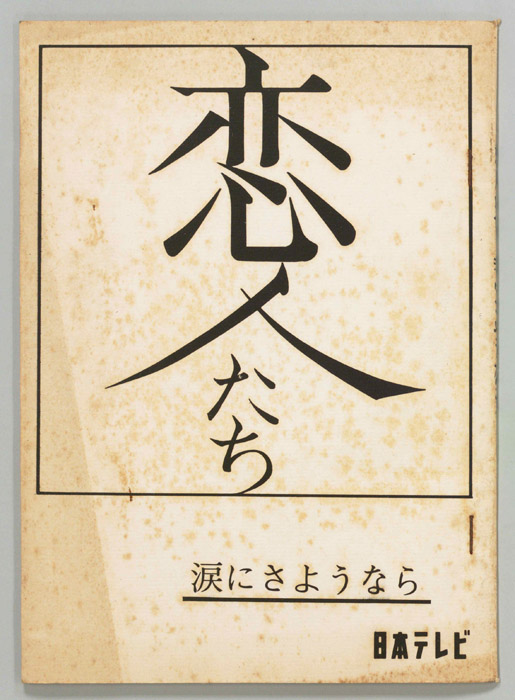 恋人たち
涙にさようなら
日本テレビ